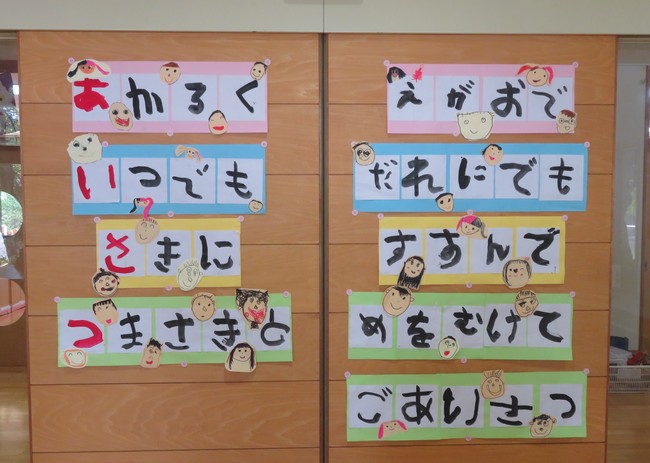 あかるく
いつでも
さきに
つまさきと
えがおで
だれにでも
すすんで
めをむけて
ごあいさつ